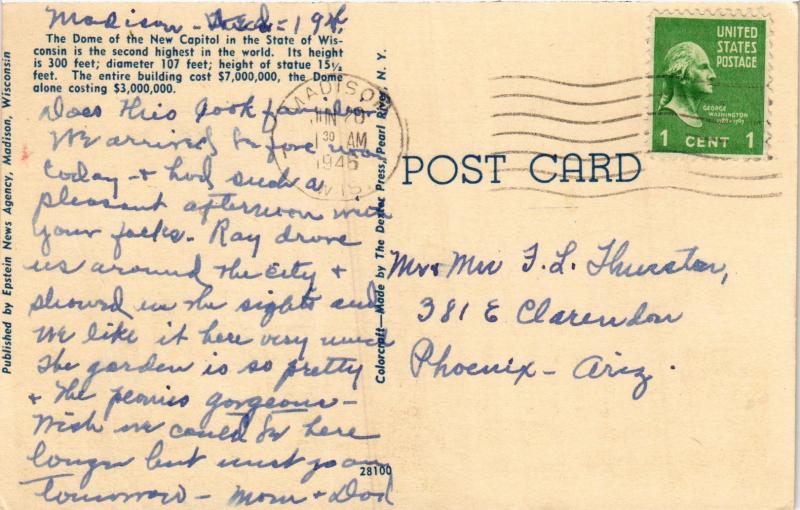 Madison - Wed - 19th
The Dome of the New Capitol in the State of Wis-
consin is the second highest in the world. Its height
is 300 feet; diameter 107 feet; height of statue 15½
feet. The entire building cost $7,000,000, the Dome
alone costing $3,000,000.
Does this look familiar
We arrived before noon
today - & had such a
pleasant afternoon with
your folks. Ray drove
us around the city &
showed us the sights and
We like it here very much
The garden is so pretty
& the peonies gorgeous -
Wish we could be here
longer but must go on
tomorrow - Mom & Dad
Published by Epstein News Agency, Madison, Wisconsin
Colorcraft—Made by The Dexter Press, Pearl River, N. Y.
28100
MADISON
JUN 20
30 AM
1946
WIS.
POST CARD
UNITED
STATES
POSTAGE
GEORGE
WASHINGTON
1789-1797
1 CENT 1
Mr & Mrs F. L. Thurston,
381 E Clarendon
Phoenix - Ariz.